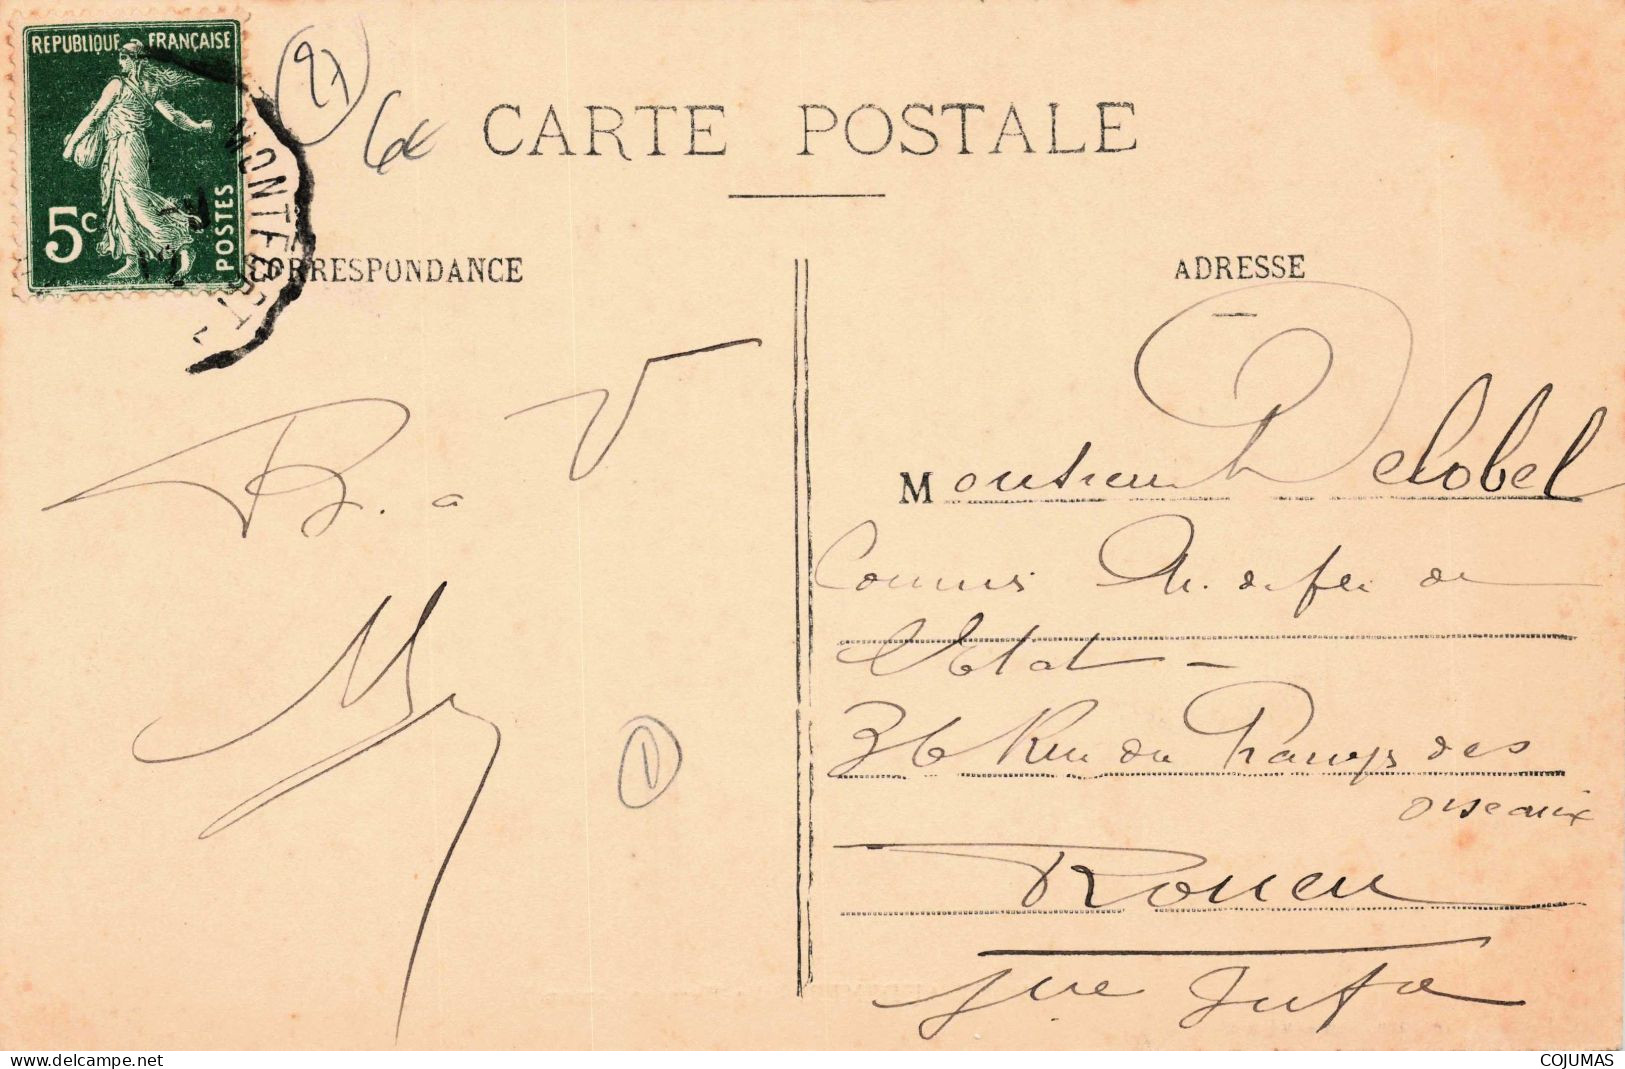 REPUBLIQUE FRANÇAISE
5c POSTES
MONTFORT
27
6€
CARTE POSTALE
CORRESPONDANCE
ADRESSE
B. a V
Monsieur Delobel
Commis Ch. de fer de
l'Etat -
36 Rue du Champ des
oiseaux
Rouen
Sne Infre
www.delcampe.net
COJUMAS